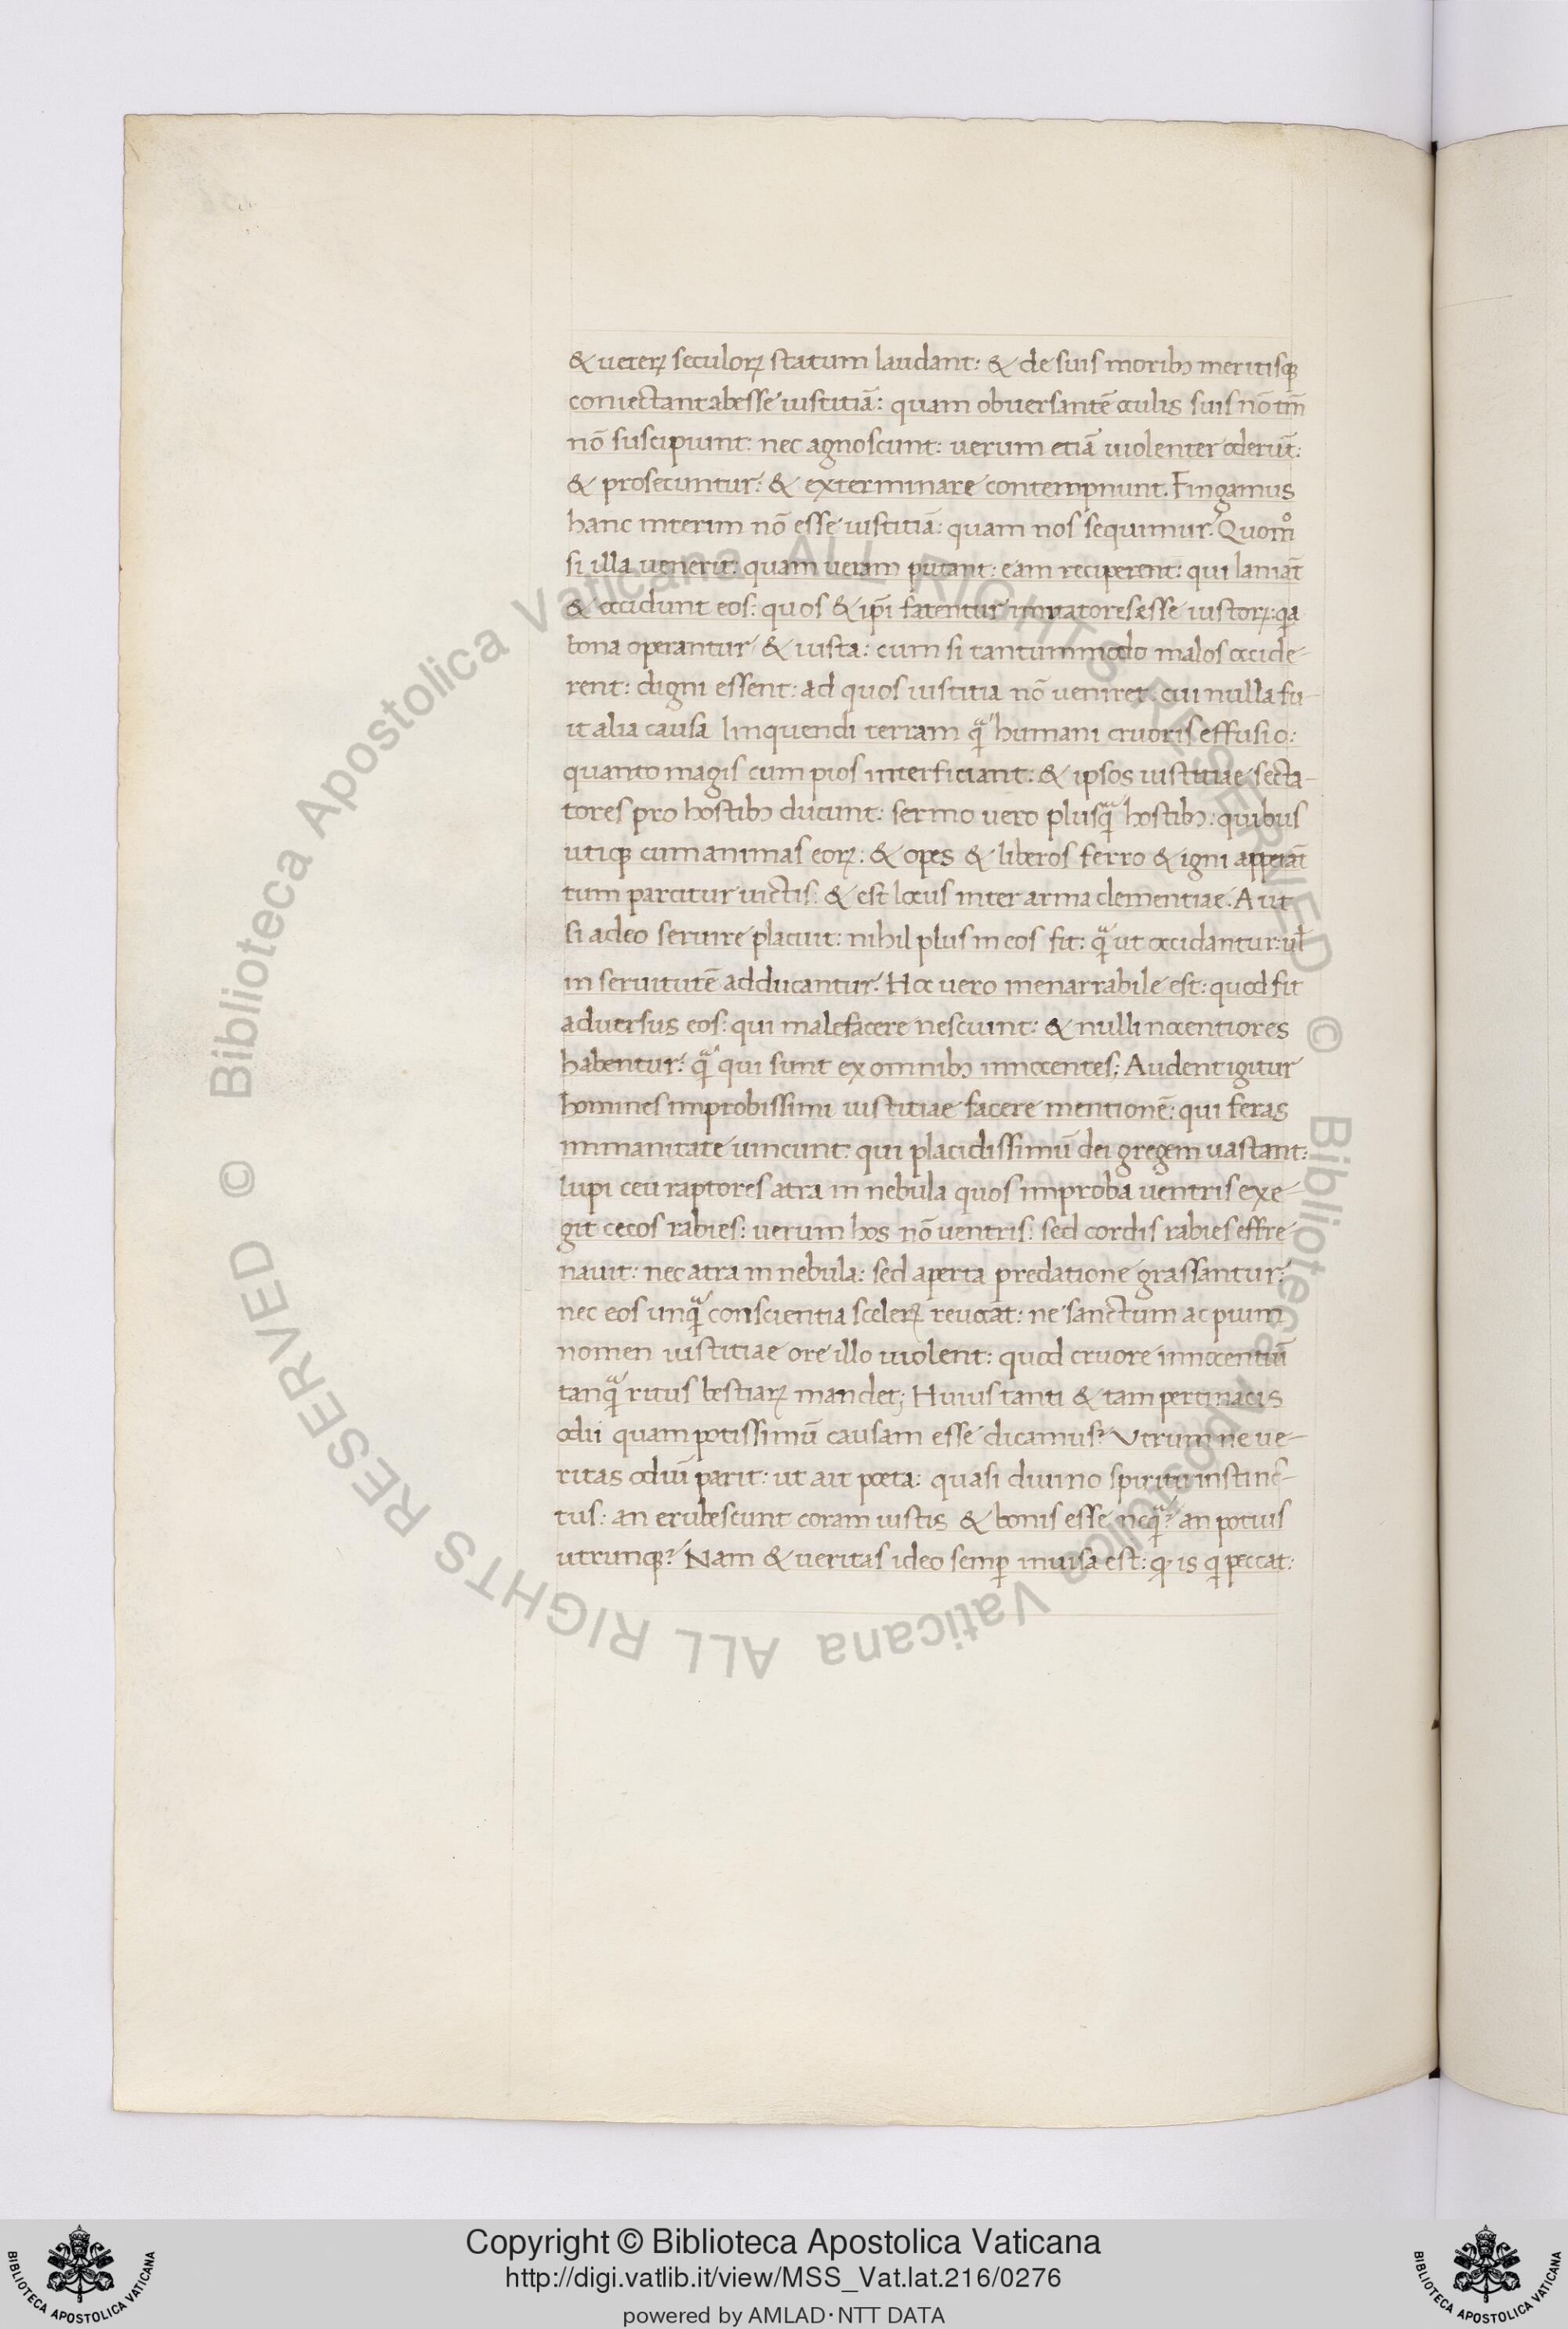 & ueterꝝ seculorꝝ statum laudant: & de suis moribꝫ meritisqꝫ
coniectant abesse iustitiā: quam obuersantē oculis suis nō tm̄
nō suscipiunt: nec agnoscunt: uerum etiā uiolenter oderūt:
& prosecuntur: & exterminare contempnunt. Fingamus
hanc interim nō esse iustitiā: quam nos sequimur. Quomº
si illa uenerit: quam ueram putant: eam reciperent: qui laniāt
& occidunt eos: quos & ip̄i fatentur imitatores esse iustorꝝ: qa
bona operantur & iusta: cum si tantummodo malos occide-
rent: digni essent: ad quos iustitia nō ueniret. cui nulla fu-
it alia causa linquendi terram qᷓ humani cruoris effusio:
quanto magis cum pios interficiant: & ipsos iustitiae secta-
tores pro hostibꝫ ducunt: sermo uero plusqᷓ hostibꝫ: quibus
utiqꝫ cum animas eorꝝ: & opes & liberos ferro & igni appetāt
tum parcitur uictis: & est locus inter arma clementiae. Aut
si adeo seruire placuit: nihil plus in eos fit: qᷓ ut occidantur: ul̄
in seruitutē adducantur. Hoc uero inenarrabile est: quod fit
aduersus eos: qui malefacere nesciunt: & nulli nocentiores
habentur: qᷓ qui sunt ex omnibꝫ innocentes; Audent igitur
homines improbissimi iustitiae facere mentionē: qui feras
immanitate uincunt: qui placidissimū dei gregem uastant:
lupi ceu raptores atra in nebula quos improba uentris exe-
git cecos rabies: uerum hos nō uentris: sed cordis rabies effre-
nauit: nec atra in nebula: sed aperta predatione grassantur:
nec eos unqᷓ conscientia scelerꝝ reuocāt: ne sanctum ac pium
nomen iustitiae ore illo uiolent: quod cruore innocentiū
tanqᷓ ritus bestiarꝝ mandet; Huius tanti & tam pertinacis
odii quam potissimū causam esse dicamus? Vtrum ne ue-
ritas odiū parit: ut ait poeta: quasi diuino spiritu instinc-
tus: an erubescunt coram iustis & bonis esse neqᷓ? an potius
utrunqꝫ? Nam & ueritas ideo semꝑ inuisa est: q. is q peccat:
© Biblioteca Apostolica Vaticana ALL RIGHTS RESERVED
© Biblioteca Apostolica Vaticana ALL RIGHTS RESERVED
Copyright © Biblioteca Apostolica Vaticana
http://digi.vatlib.it/view/MSS_Vat.lat.216/0276
powered by AMLAD·NTT DATA
BIBLIOTECA APOSTOLICA VATICANA
BIBLIOTECA APOSTOLICA VATICANA